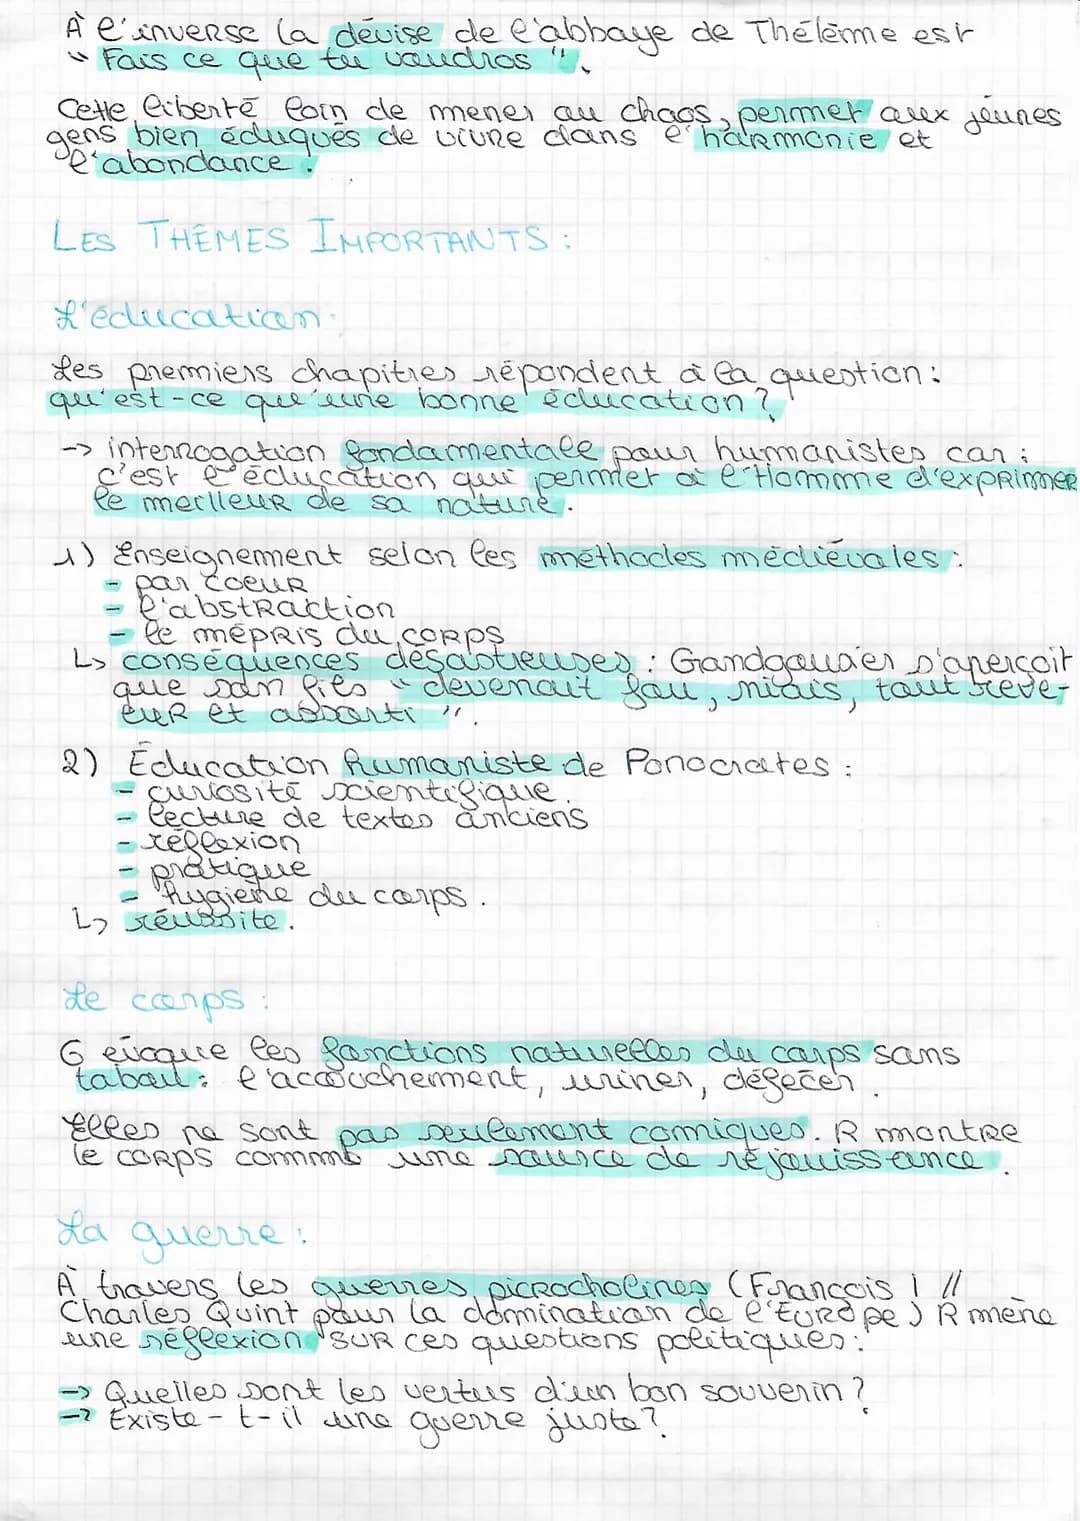 À l'inverse la dévise de l'abbaye de Thélème est
"Fais ce que tu voudras".
Cette liberté loin de mener au chaos, permet aux jeunes
gens bien éduqués de vivre dans l'harmonie et
l'abondance.
LES THÈMES IMPORTANTS :
L'éducation :
Les premiers chapitres répondent à la question :
qu'est-ce que une bonne éducation ?
-> interrogation fondamentale pour humanistes car :
c'est l'éducation qui permet à l'Homme d'exprimer
le meilleur de sa nature.
1) Enseignement selon les méthodes médiévales :
- par coeur
- l'abstraction
- le mépris du corps
↳ conséquences désastreuses : Grandgousier s'aperçoit
que son fils "devenait fou, niais, tout rêve-
eur et assorti".
2) Éducation humaniste de Ponocrates :
- curiosité scientifique.
- lecture de textes anciens
- réflexion
- pratique
- hygiène du corps.
↳ réussite.
Le corps :
G évoque les fonctions naturelles du corps sans
tabou : l'accouchement, uriner, déféquer.
Elles ne sont pas seulement comiques. R montre
le corps comme une source de réjouissance.
La guerre :
À travers les guerres picrocholines (François I //
Charles Quint pour la domination de l'Europe) R mène
une réflexion sur ces questions politiques :
-> Quelles sont les vertus d'un bon souverin ?
-> Existe-t-il une guerre juste ?